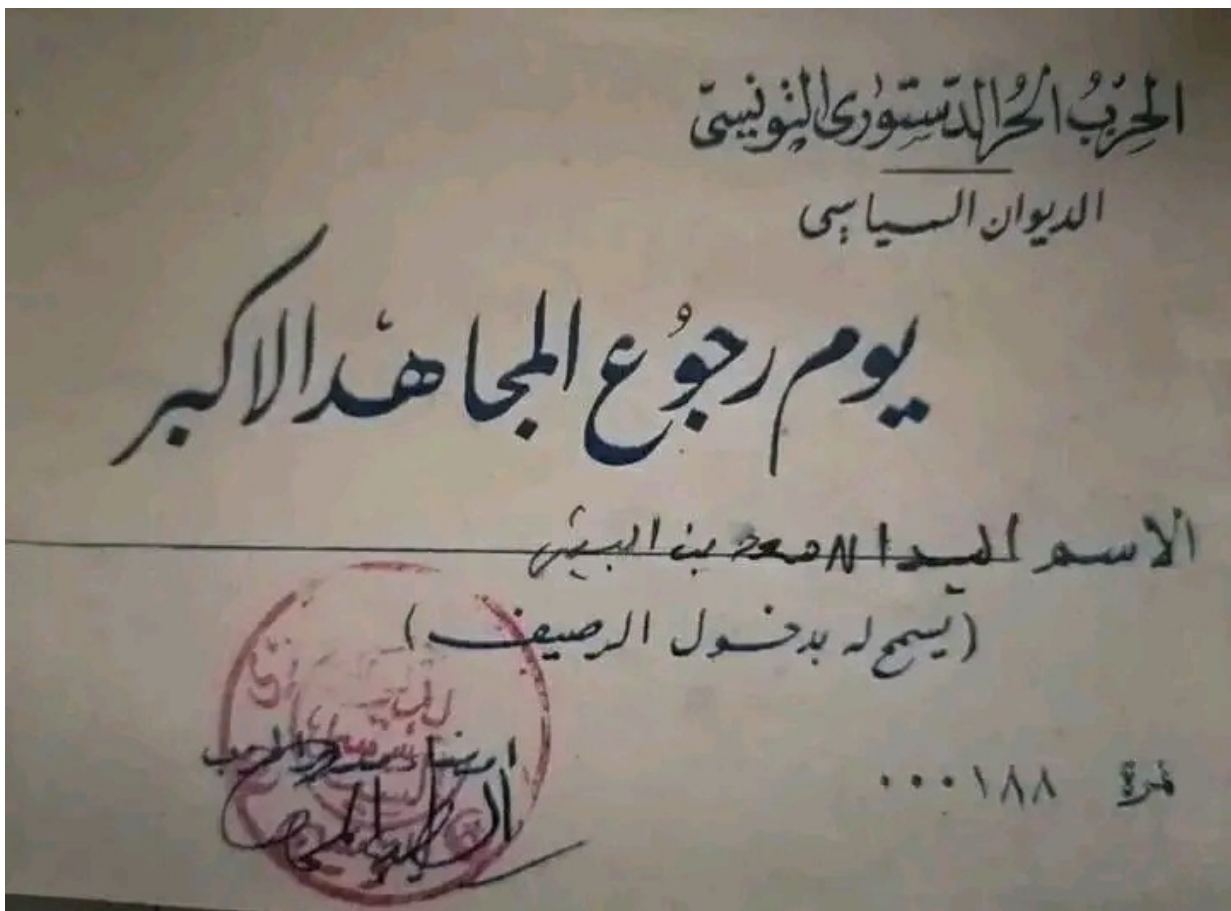 الحِزبُ الحُر الدّستورى التونسىّ
الديوان السياسى
يوم رجوُع المجاهد الاكبر
الاسم السيد الامعد بن البشير
(يسمح له بدخول الرصيف)
نمرة ٠٠٠١٨٨
الحزب